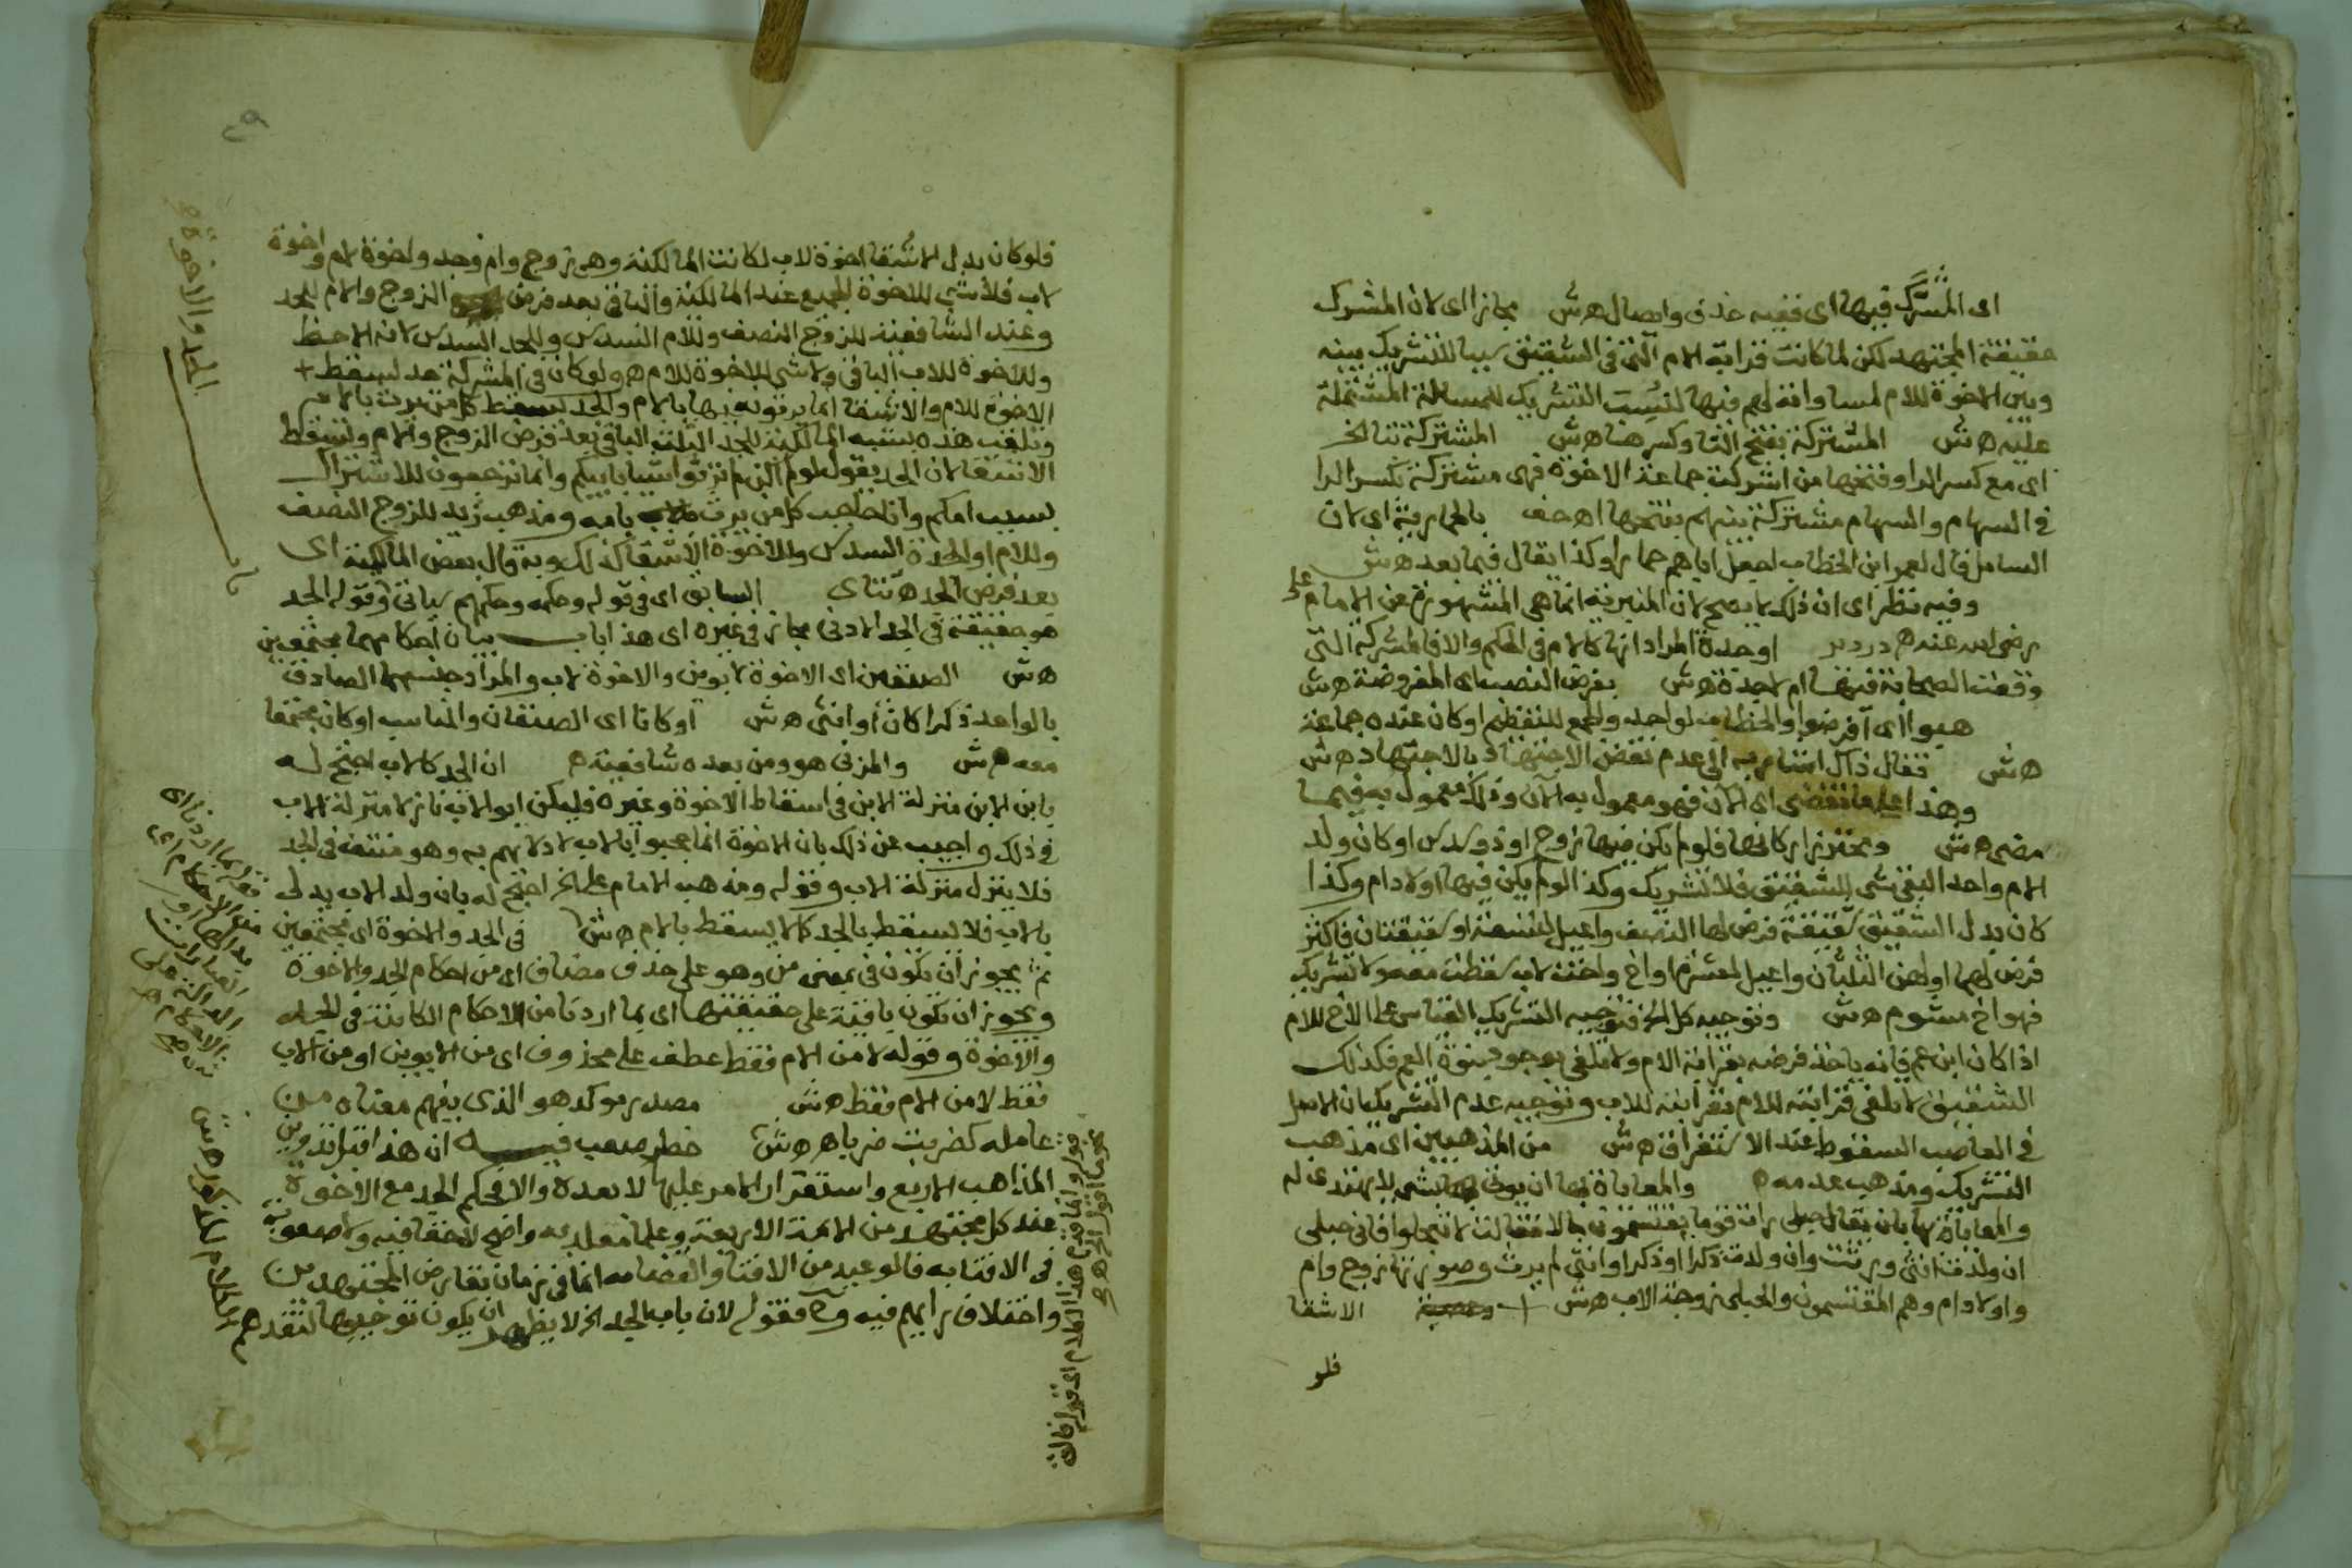 اى المُشَرَّك فيها اى ففيه حذف وايصال ه ش مجازا اى لان المشرك
حقيقة المجتهد لكن لما كانت قرابة الام التى فى الشقيق سببا للتشريك بينه
وبين الاخوة للام لمساواته لهم فيها نُسِبَ التشريك للمسالة المشتملة
عليه ه ش المشتركة بفتح التا وكسرها ه ش المشتركة بتا الخ
اى مع كسر الرا وفتحها من اشركت جماعة الاخوة فهى مشتركة بكسر الرا
فى السهام والسهام مشتركة بينهم بفتحها اه حف بالحمارية اى لان
السايل قال لعمر ابن الخطاب اجعل اباهم حمارا وكذا يقال فيما بعد ه ش
وفيه نظر اى ان ذلك لا يصح لان المنبرية انما هى المشهورة عن الامام على
رضى الله عنه ه دردير او جدة المراد انها كالام فى الحكم والا فالمشركة التى
وقعت للصحابة فيها ام لا جدة ه ش بفرض النصب اى المفروضة ه ش
هبوا اى افرضوا والخطاب لواحد والجمع للتعظيم او كان عنده جماعة
ه ش فقال ذاك اشار به الى عدم نقض الاجتهاد بالاجتهاد ه ش
وهذا على ما نقضى اى الان فهو معمول به الآن وذلك معمول به فيما
مضى ه ش ومحترز اركانها فلو لم يكن فيها زوج او ذو سدس او كان ولد
الام واحدا لبقى شى للشقيق فلا تشريك وكذا لو لم يكن فيها اولاد ام وكذا
كان بدل الشقيق شقيقة فرض لها النصف واعيل لتسعة او شقيقتان فاكثر
فرض لهما او لهن الثلثان واعيل لعشرة او اخ واخت لاب سقطت معه ولا تشريك
فهو اخ مشوم ه ش وتوجيه كل الخ فتوجيه التشريك القياس على الاخ للام
اذا كان ابن عم فانه ياخذ فرضه بقرابة الام ولا تلغى بوجود بنوة العم فكذلك
الشقيق لا تلغى قرابته للام بقرابته للاب وتوجيه عدم التشريك بان الاصل
فى العاصب السقوط عند الاستغراق ه ش من المذهبين اى مذهب
التشريك ومذهب عدمه ه والمعاياة بها ان يوتى بشى لا يهتدى له
والمعاياة بها بان يقال حبلى رات قوما يقتسمون مالا فقالت لا تعجلوا فانى حبلى
ان ولدت انثى ورثت وان ولدت ذكرا او ذكرا وانثى لم يرث وصورتها زوج وام
واولاد ام وهم المقتسمون والحبلى زوجة الاب ه ش + الاشقا
فلو
فلو كان بدل الاشقا اخوة لاب لكانت المالكية وهى زوج وام وجد واخوة لام واخوة
لاب فلا شى للاخوة للجميع عند المالكية والباقى بعد فرض الزوج والام للجد
وعند الشافعية للزوج النصف وللام السدس وللجد السدس لانه الاحظ
وللاخوة للاب الباقى ولا شى للاخوة للام ه ولو كان فى المشركة جد لسقط +
الاخوة للام والاشقا انما يرثون فيها بالام والجد يسقط كل من يرث بالام
وتلقب هذه بشبه المالكية للجد الثلث الباقى بعد فرض الزوج والام وتسقط
الاشقا لان الجد يقول لهم لو لم اكن لم ترثوا شيا بابيكم وانما ترثون للاشتراك
بسبب امكم وانا حاجب كل من يرث بامه ومذهب زيد للزوج النصف
وللام او الجدة السدس وللاخوة الاشقا كذلك وبه قال بعض المالكية اى
بعد فرض الجد ه شتاى السابق اى فى قوله وحكمه وحكمهم سياتى وقوله الجد
هو حقيقة فى الجد الادنى مجاز فى غيره اى هذا باب بيان احكامهما مجتمعين
ه ش الصنفين اى الاخوة لابوين والاخوة لاب والمراد جنسهما الصادق
بالواحد ذكرا كان او انثى ه ش او كانا اى الصنفان والمناسب او كان مجتمعا
معه ه ش والمزنى هو ومن بعده شافعية ه ان الجد كالاب احتج له
بابن الابن منزلة الابن فى اسقاط الاخوة وغيره فليكن ابو الاب نازلا منزلة الاب
فى ذلك واجيب عن ذلك بان الاخوة انما حجبوا بالاب لادلائهم به وهو منتف فى الجد
فلا ينزل منزلة الاب وقوله ومذهب الامام على الخ احتج له بان ولد الاب يدلى
بالاب فلا يسقط بالجد كما لا يسقط بالام ه ش فى الجد والاخوة اى مجتمعين
ثم يجوز ان تكون فى بمعنى من وهو على حذف مضاف اى من احكام الجد والاخوة
ويجوز ان تكون باقية على حقيقتها اى بما اردنا من الاحكام الكائنة فى الجد
والاخوة وقوله لا من الام فقط عطف على محذوف اى من الابوين او من الاب
فقط لا من الام فقط ه ش مصدر موكد هو الذى يفهم معناه من
عامله كضربت ضربا ه ش خطر صعب فيه ان هذا قبل تدوين
المذاهب الاربع واستقرار الامر عليها لا بعده والا فحكم الجد مع الاخوة
عند كل مجتهد من الائمة الاربعة وعلما مقلديه واضح لا خفا فيه ولا صعوبة
فى الافتا به فالوعيد من الافتا والقضا به انما فى زمان تعارض المجتهدين
واختلاف رايهم فيه و ح فقوله لان باب الجد الخ لا يظهر ان يكون توجيها لتقدم
الجد والاخوة
هذا الكلام